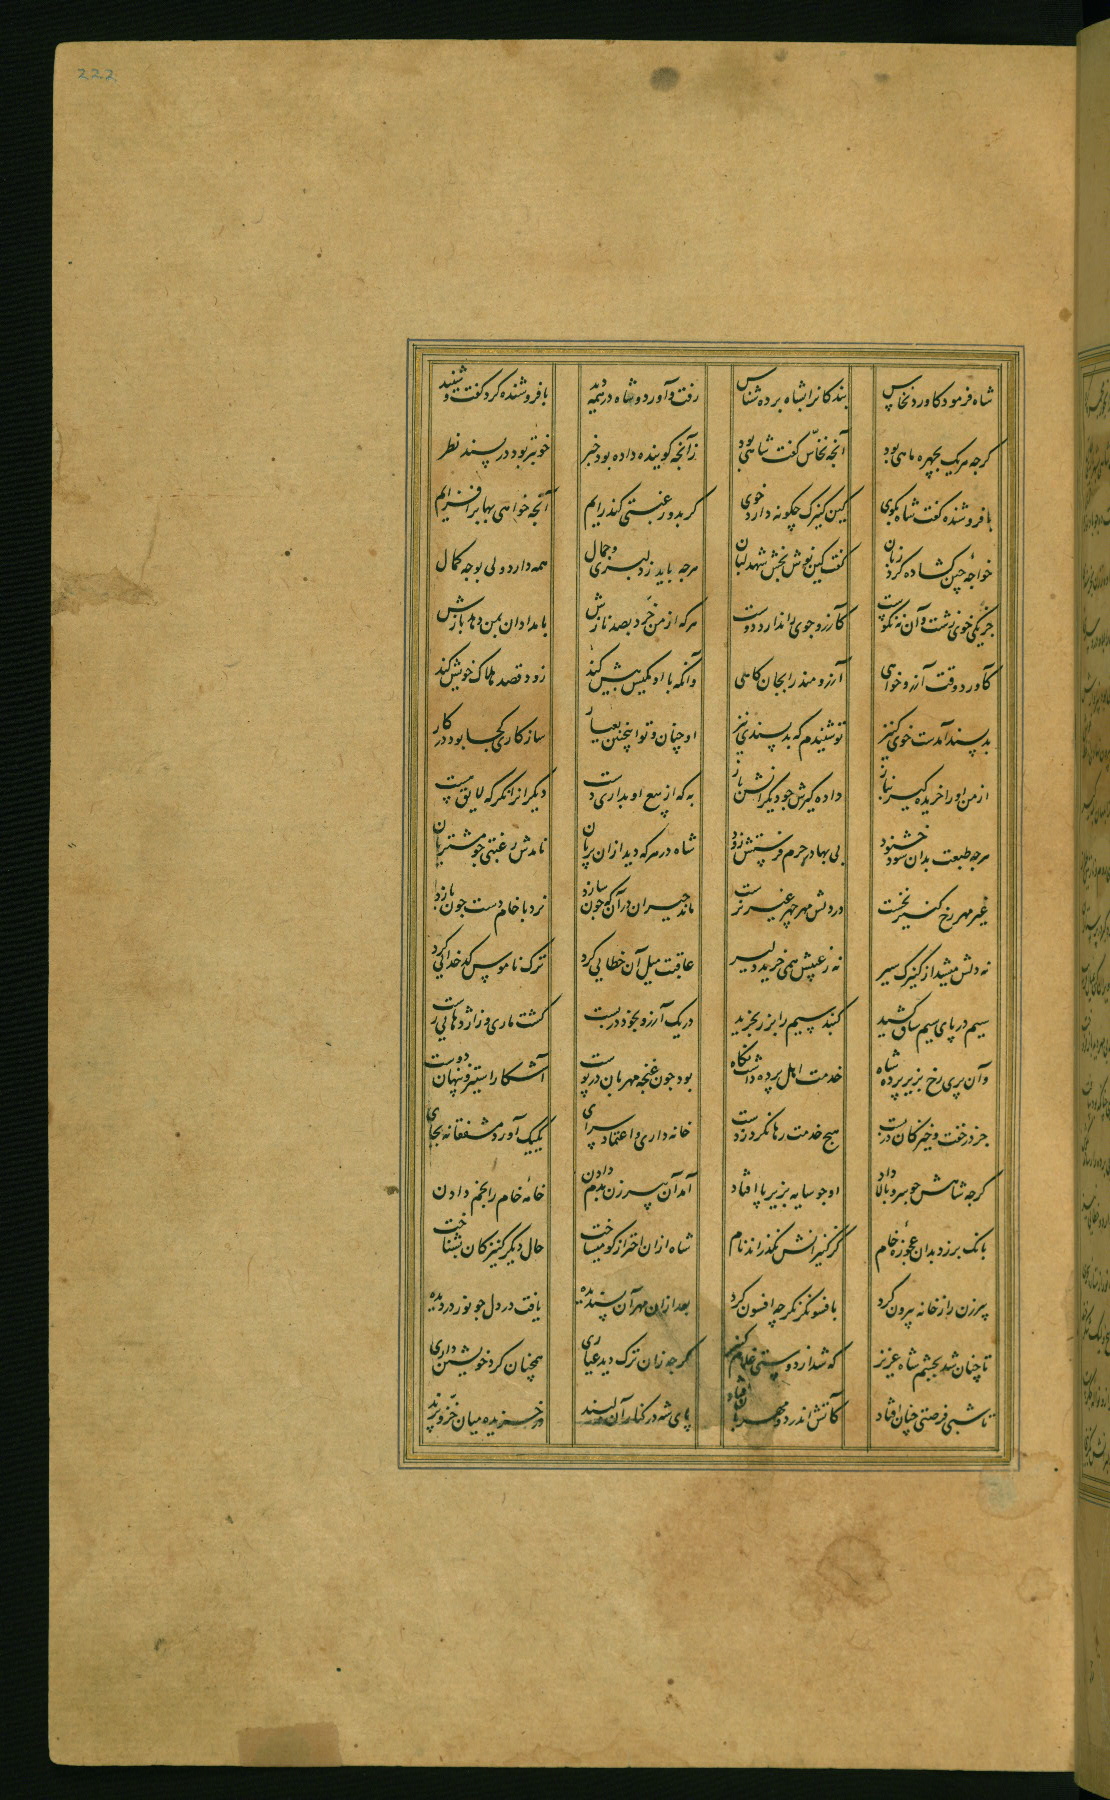 222
شاه فرمود کاورد نخاس بندکانرا بشاه برده شناس رفت و آورد و شاه در همه دید با فروشنده کرد کفت و شنید
کرجه هر یک بچهره ماهی بود آنجه نخاس کفت شاهی بود زآنجه کوینده داده بود خبر خوبتر بود در پسند نظر
با فروشنده کفت شاه بکوی کین کنیزک چکونه دارد خوی کر بدو رغبتی کند رایم آنجه خواهی بها برافزایم
خواجه چین کشاده کرد زبان کفت کین نوش بخش شهد لبان هرجه باید ز دلبری و جمال همه دارد ولی بوجه کمال
جز یکی خوی زشت و آن نه نکوست کارزو جوی را ندارد دوست هرکه از من خرد بصد نازش بامدادان بمن دهد بازش
کاورد وقت آرزو خواهی آرزومند را بجان کاهی وانکه با او مکیس بیش کند زود قصد هلاک خویش کند
بد پسند آمدست خوی کنیز تو شنیدم که بد پسندی نیز او چنان و تو اینچنین بعیار سازکاری کجا بود در کار
از من او را خریده کیر بناز داده کیرش جو دیکران شن باز به که از بیع او بداری دست دیکر انرا نکر که لایق هست
هرجه طبعت بدان شود خشنود بی بها در حرم فرستش زود شاه در هرکه دید ازان پریان نامدش رغبتی جو مشتریان
غیر مهر رخ کنیز نخست در دلش مهر جهر غیر نرست ماند حیران در آن که جون سازد نرد با خام دست جون بازد
نه دلش میشد از کنیزک سیر نه ز عیبش همی خرید دلیر عاقبت میل آن خطایی کرد ترک ناموس کدخدایی کرد
سیم در پای سیم ساق کشید کنبد سیم را بزر بخرید در یک آرزو بخود در بست کشت ماری و ز اژدهایی رست
وآن پری رخ بزیر پرده شاه خدمت اهل پرده داشت نکاه بود جون غنجه مهربان در پوست آشکارا ستیز و پنهان دوست
جز در خفت و خیز کان در بست هیج خدمت رها نکرد ز دست خانه داری و اعتماد سرای یکبیک آورد مشفقانه بجای
کرجه شاهش جو سرو بالا داد او جو سایه بزیر پا افتاد آمد آن پیرزن بدم دادن خانه خام را بخم دادن
بانک برزد بدان عجوزه خام کز کنیزانش نکذراند نام شاه ازان احتراز کو میساخت حال دیکر کنیزکان بشناخت
پیرزن را ز خانه بیرون کرد با فسونکر نکر جه افسون کرد بعد ازان مهر آن پسندیده یافت در دل جو نور در دیده
تا چنان شد بجشم شاه عزیز که شد از دوستی غلام کنیز کرجه زان ترک دید عیاری همچنان کرد خویشتن داری
تا شبی فرصتی چنان افتاد کآتش اندر دو مهربان افتاد پای شه در کنار آن دلبند در خزیده میان خز و پرند